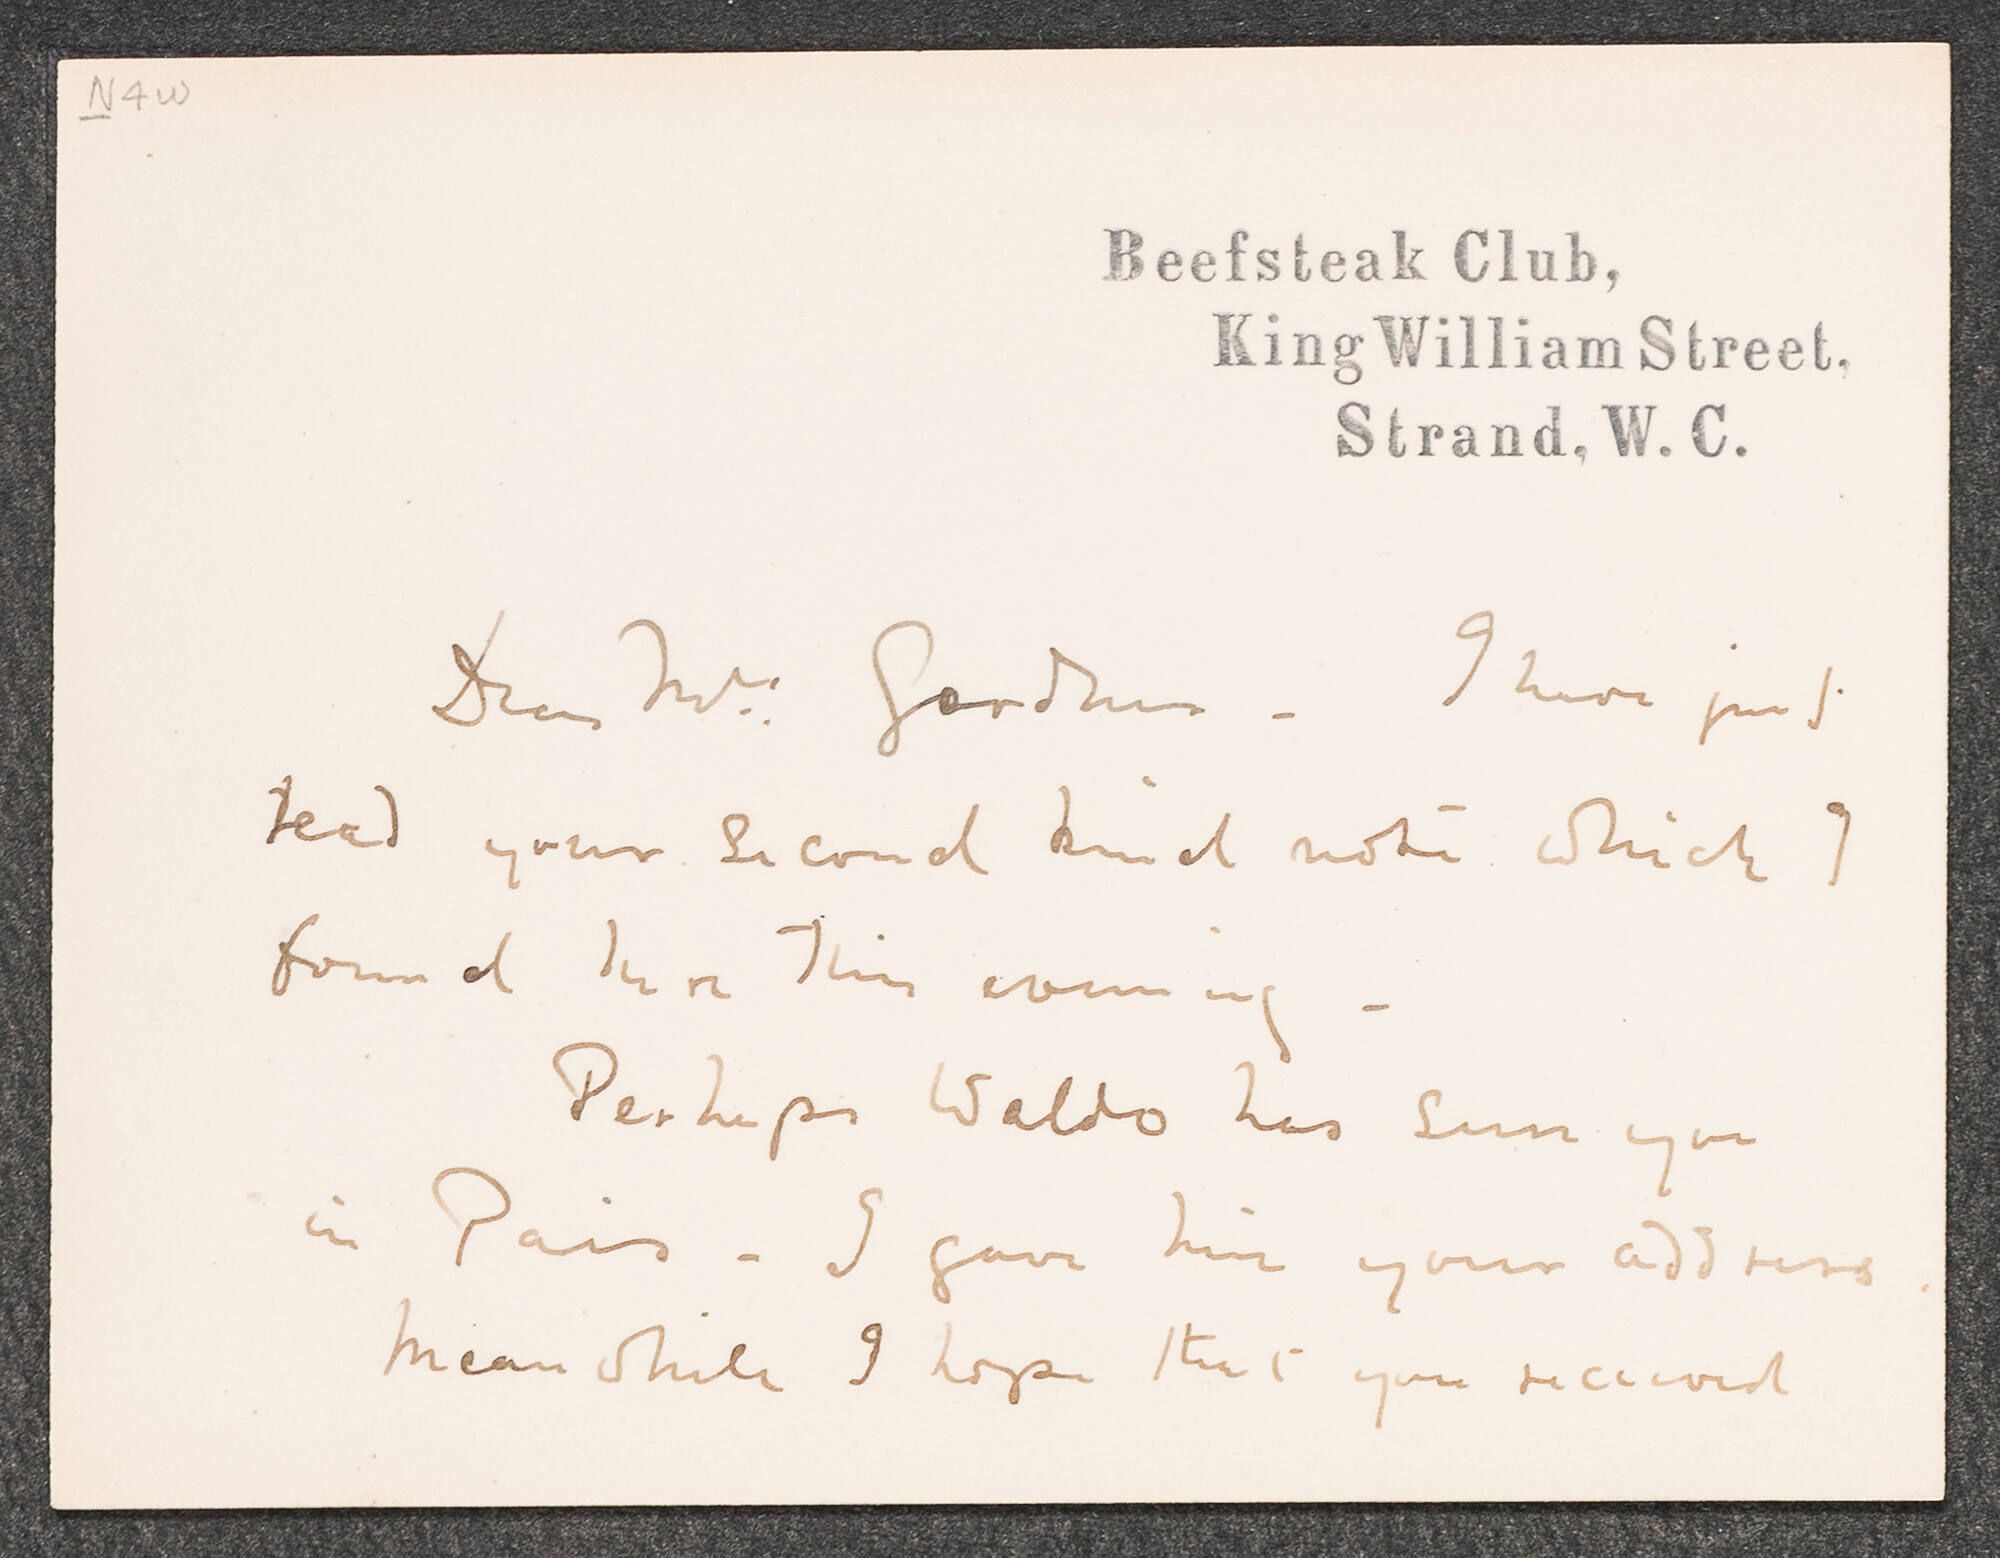 N4W
Beefsteak Club,
King William Street,
Strand, W. C.
Dear Mrs: Gardner - I have just
read your second kind note which I
found here this evening -
Perhaps Waldo has seen you
in Paris - I gave him your address.
Meanwhile I hope that you received